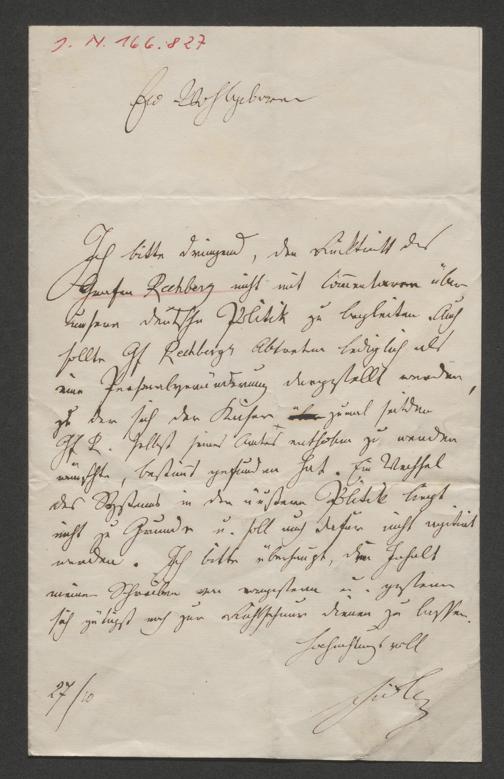 J. N. 166.827
Ew Wohlgeboren
Ich bitte dringend, den Rücktritt des
Grafen Rechberg nicht mit Commentaren über
unsere deutsche Politik zu begleiten. Auch
sollte Gf Rechbergs Abtreten lediglich als
eine Personalveränderung dargestellt werden,
zu der sich der Kaiser zumal seitdem
Gf R. selbst seines Amtes enthoben zu werden
wünschte, bestimmt gefunden hat. Ein Wechsel
des Systems in der äußeren Politik liegt
nicht zu Grunde u. soll auch dafür nicht
werden. Ich bitte überhaupt, den Inhalt
meiner Schreiben von vorgestern u. gestern
sich gütigst noch zur Richtschnur dienen zu lassen.
Hochachtungsvoll
27/10